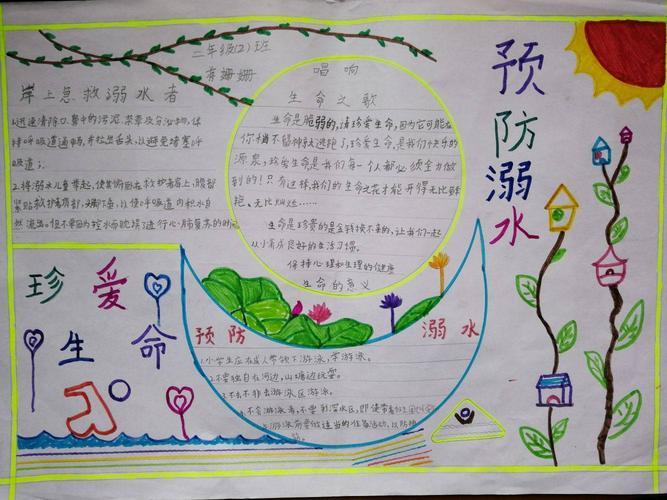 二年级(2)班
有姗姗
岸上急救溺水者
1.迅速清除口、鼻中的污泥、杂草及分泌物,保
持呼吸道通畅,并拉出舌头,以避免堵塞呼
吸道;
2.将溺水儿童举起,使其俯卧在救护者肩上,腹部
紧贴救护者肩部,头脚下垂,以使呼吸道内积水自
然流出。但不要因为控水而耽误了进行心肺复苏的时间
唱响
生命之歌
生命是脆弱的,请珍爱生命,因为它可能在
你稍不留神就逃跑了,珍爱生命,是我们快乐的
源泉,珍爱生命,是我们每一个人都必须全力做
到的!只有这样,我们的生命之花才能开得无比鲜
艳、无比灿烂……
生命是珍贵的是金钱换不来的,让我们一起
从小养成良好的生活习惯。
保持心理和生理的健康
生命的意义
预防溺水
珍爱
生命
预防 溺水
1.小学生应在成人带领下游泳,学游泳。
2.不要独自在河边,山塘边玩耍。
3.不去非游泳区游泳。
4.不会游泳者,不要到深水区,即使带着救生圈
游泳前要做适当的准备活动,以防抽
筋。